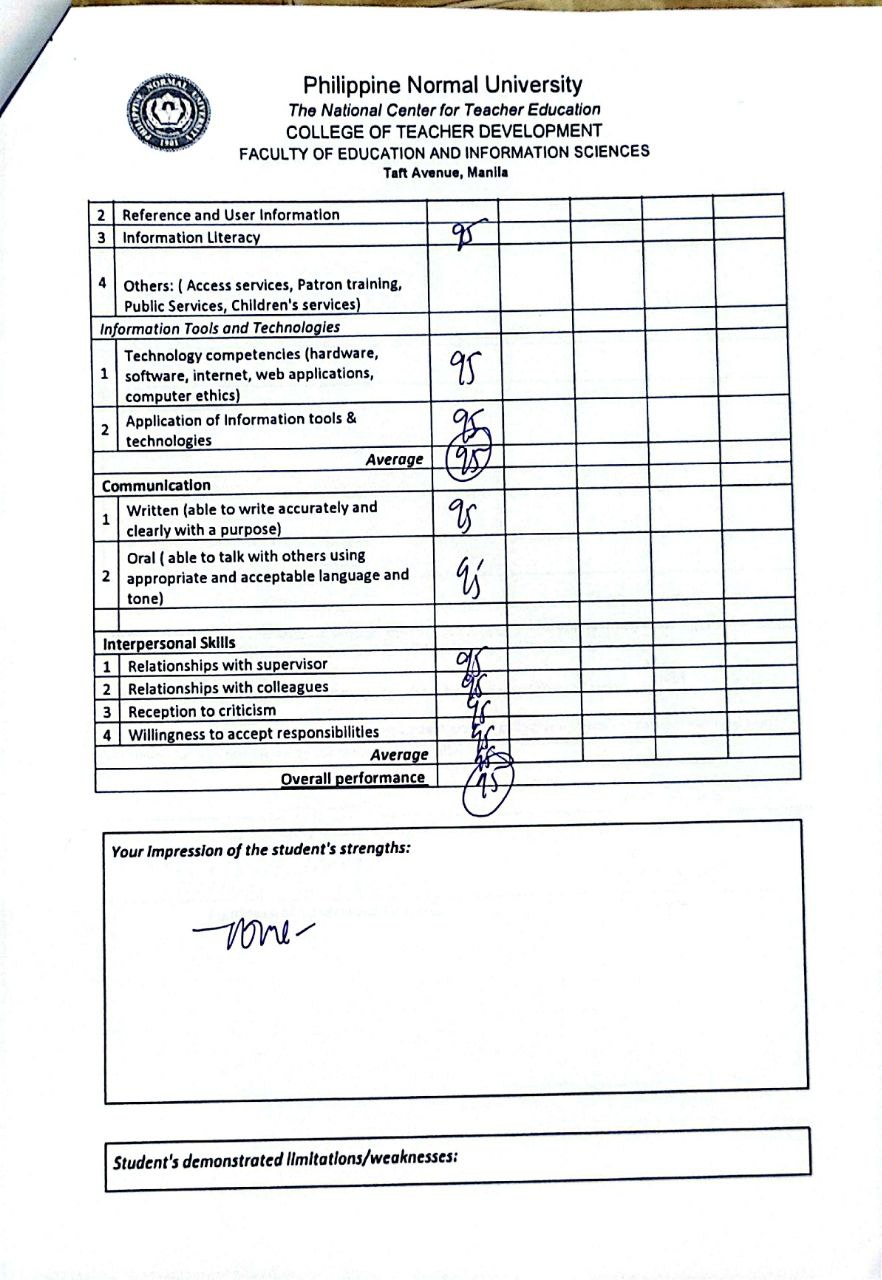 PHILIPPINE NORMAL UNIVERSITY
1901
Philippine Normal University
The National Center for Teacher Education
COLLEGE OF TEACHER DEVELOPMENT
FACULTY OF EDUCATION AND INFORMATION SCIENCES
Taft Avenue, Manila
2 Reference and User Information
3 Information Literacy 95
4 Others: ( Access services, Patron training,
Public Services, Children's services)
Information Tools and Technologies
1 Technology competencies (hardware,
software, internet, web applications,
computer ethics) 95
2 Application of Information tools &
technologies 95
Average 95
Communication
1 Written (able to write accurately and
clearly with a purpose) 95
2 Oral ( able to talk with others using
appropriate and acceptable language and
tone) 95
Interpersonal Skills
1 Relationships with supervisor 95
2 Relationships with colleagues 95
3 Reception to criticism 95
4 Willingness to accept responsibilities 95
Average 95
Overall performance 95
Your Impression of the student's strengths:
-none-
Student's demonstrated limitations/weaknesses: